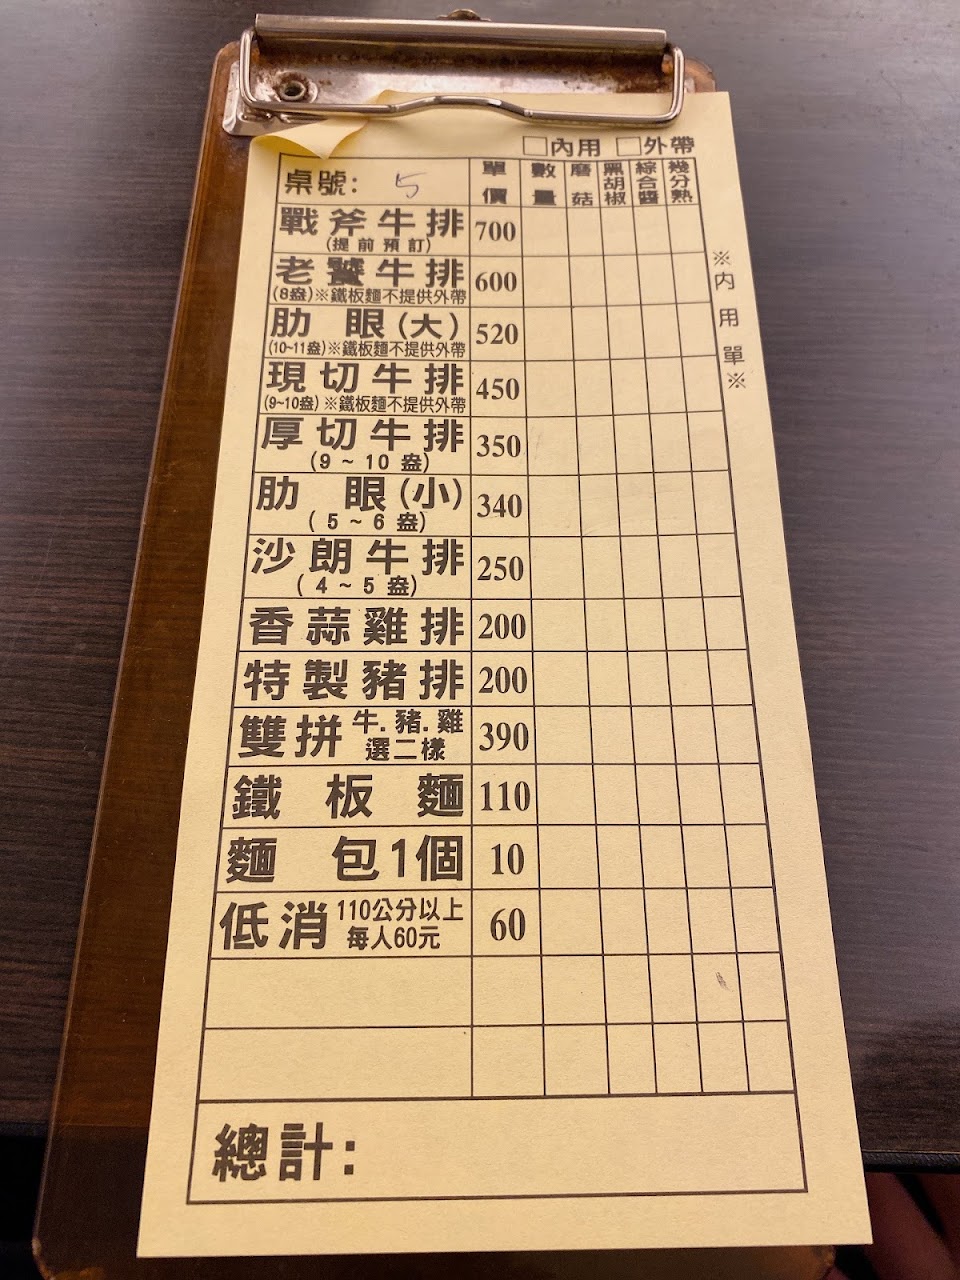 □內用 □外帶
桌號: 5 單價 數量 磨菇 黑胡椒 綜合醬 幾分熟
戰斧牛排 700
(提前預訂)
老饕牛排 600
(8盎)※鐵板麵不提供外帶
肋眼(大) 520
(10~11盎)※鐵板麵不提供外帶
現切牛排 450
(9~10盎)※鐵板麵不提供外帶
厚切牛排 350
(9~10盎)
肋眼(小) 340
(5~6盎)
沙朗牛排 250
(4~5盎)
香蒜雞排 200
特製豬排 200
雙拼 牛.豬.雞 390
選二樣
鐵板麵 110
麵包1個 10
低消 110公分以上 60
每人60元
總計:
※內用單※